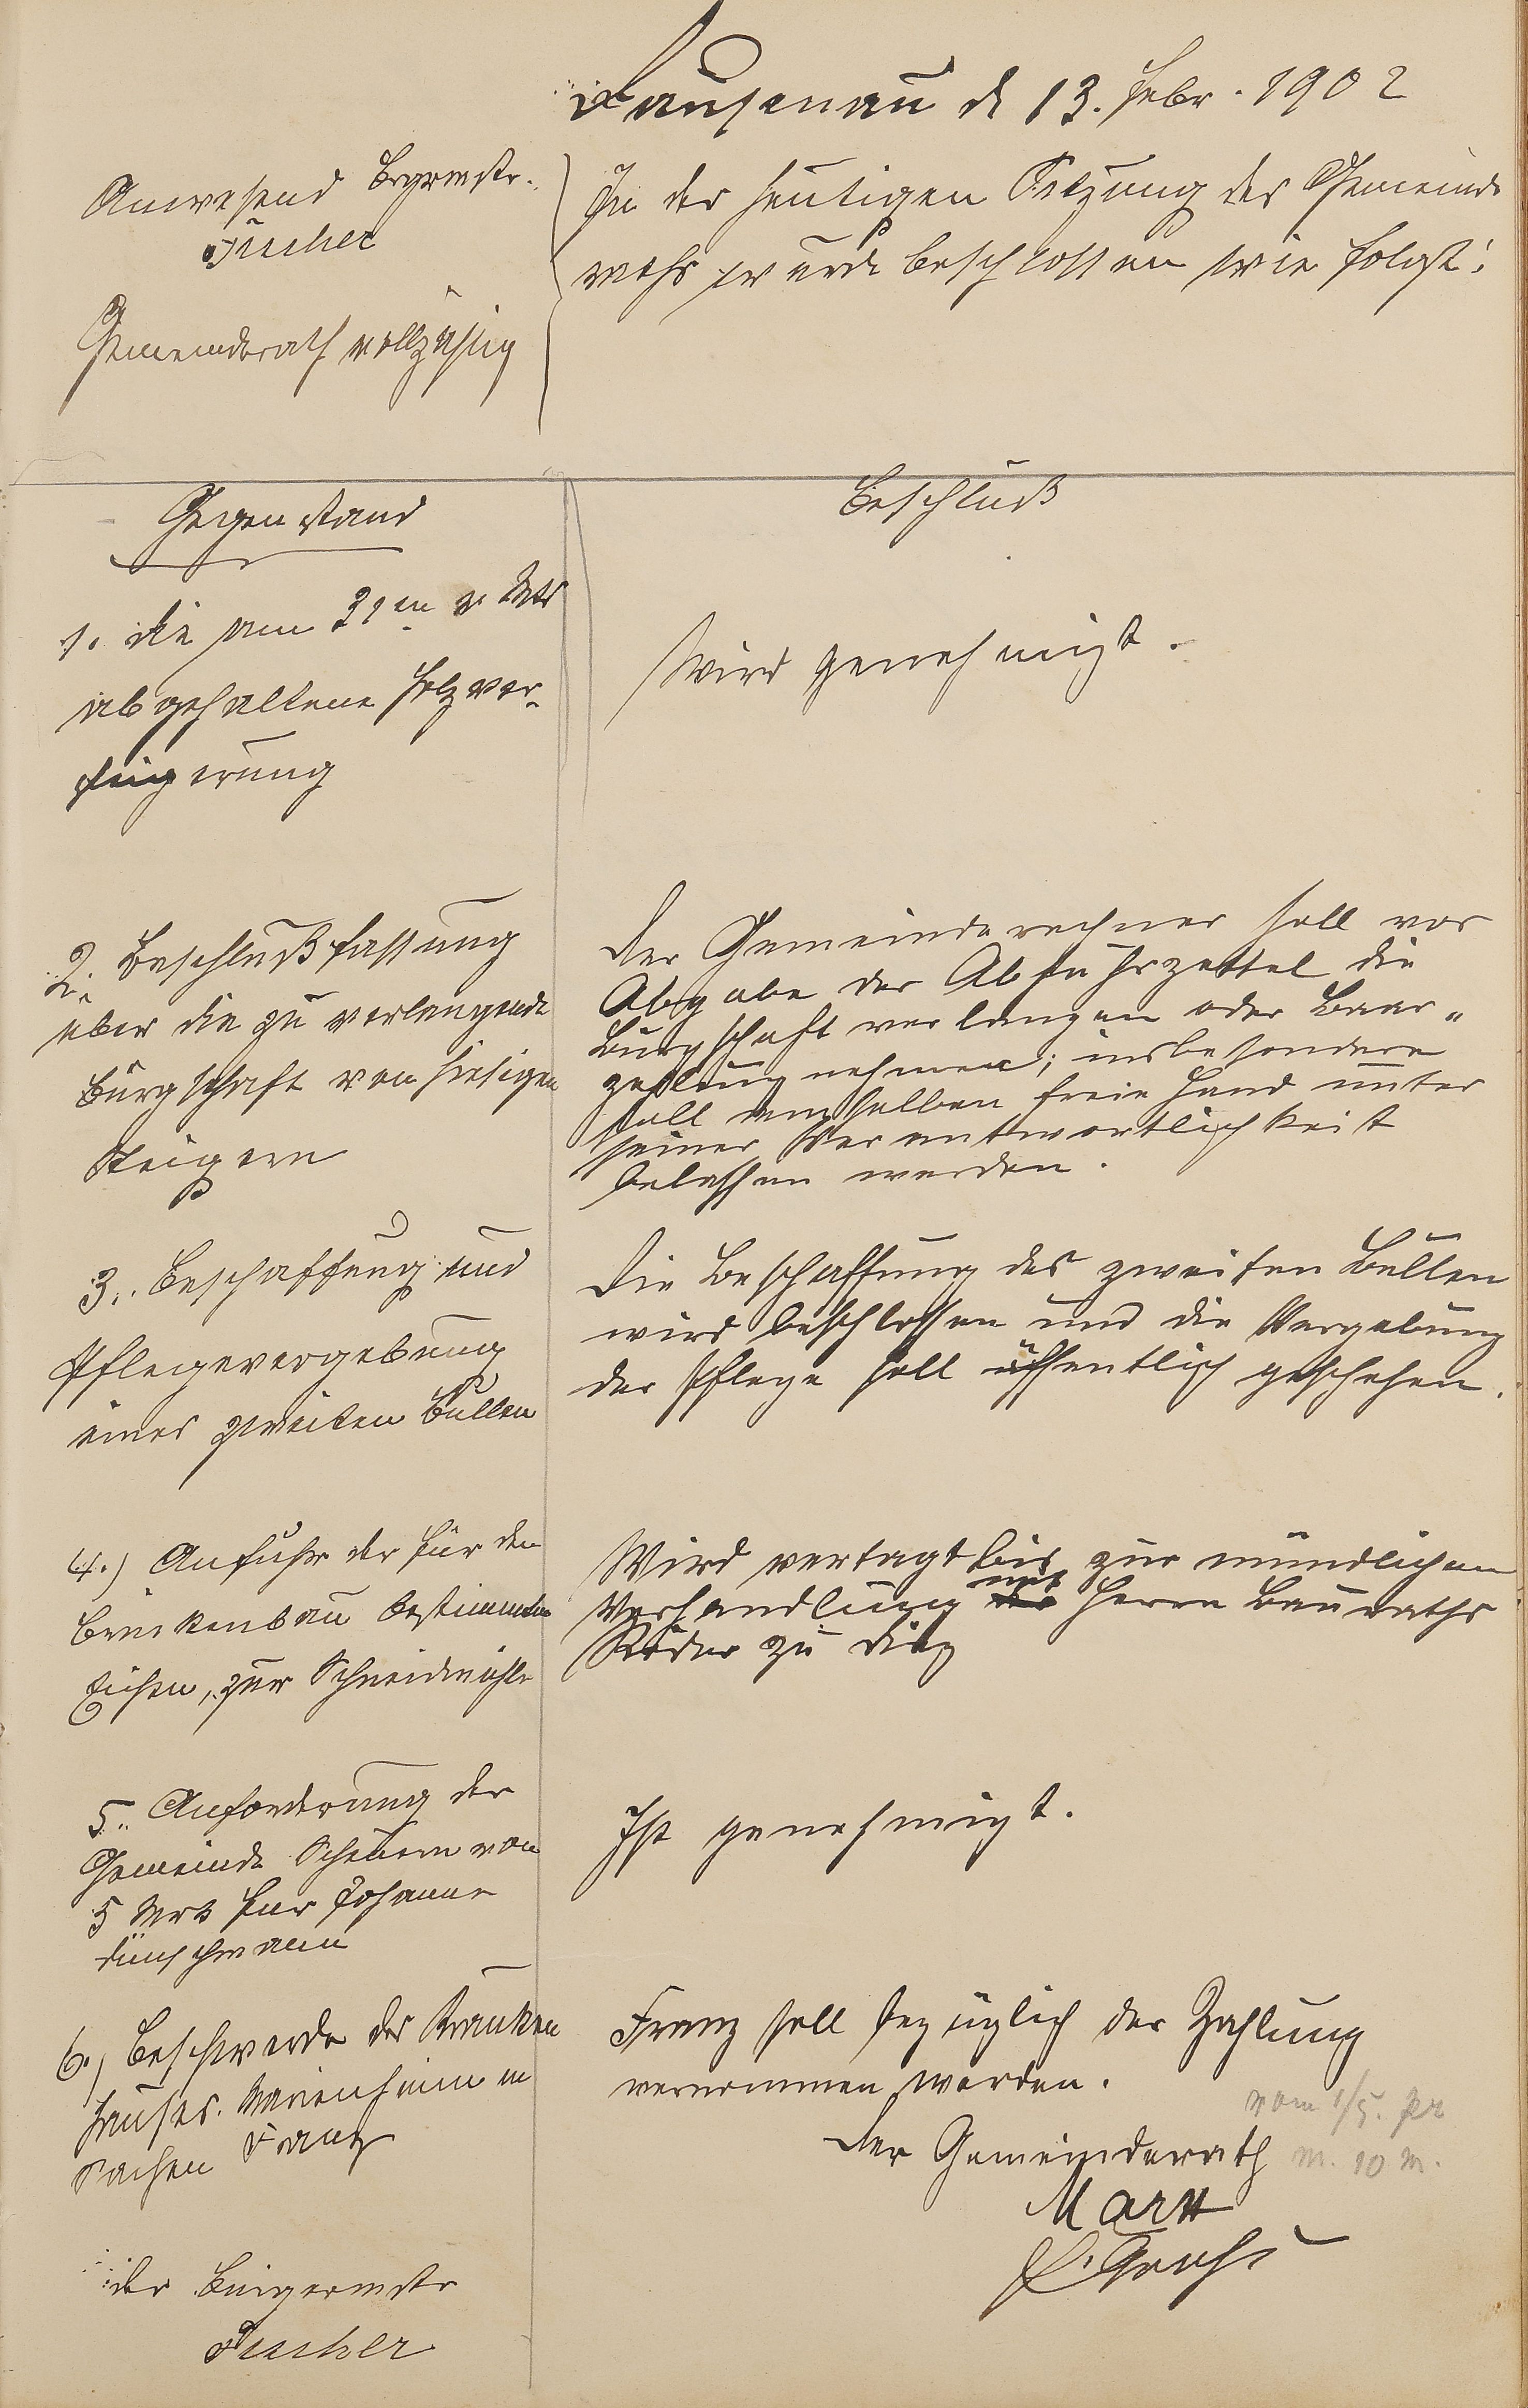 Dausenau d 13. Febr. 1902
Anwesend Brgrmstr.
Fischer
Gemeinderath vollzählig
In der heutigen Sitzung des Gemeinde
raths wurde beschlossen wie folgt:
Gegenstand
Beschluß
1. die am 31ten v Mts
abgehaltene Holzver-
steigerung
Wird genehmigt.
2. Beschlußfassung
über die zu verlangende
Bürgschaft von hiesigen
Steigern
Der Gemeinderechner soll vor
Abgabe der Abfuhrzettel die
Bürgschaft verlangen oder Baar„
zahlung nehmen; insbesondere
soll demselben freie Hand unter
seiner Verantwortlichkeit
belassen werden.
3. Beschaffung und
Pflegevergebung
eines zweiten Bullen
Die Beschaffung des zweiten Bullen
wird beschlossen und die Vergebung
der Pflege soll öffentlich geschehen.
4.) Anfuhr der für den
Brückenbau bestimmten
Eichen, zur Schneidmühle
Wird vertagt bis zur mündlichen
Verhandlung mit Herrn Bauraths
Röder zu Diez
5. Anforderung der
Gemeinde Scheuern von
5 Mrk für Johanne
Dünschmann
Ist genehmigt.
6.) Beschwerde des Kranken
hauses Marienheim in
Sachen Franz
Franz soll bezüglich der Zahlung
vernommen werden.
vom 1/5. pr
m. 10 M.
Der Gemeinderath
Marx
der Bürgermstr
Fischer